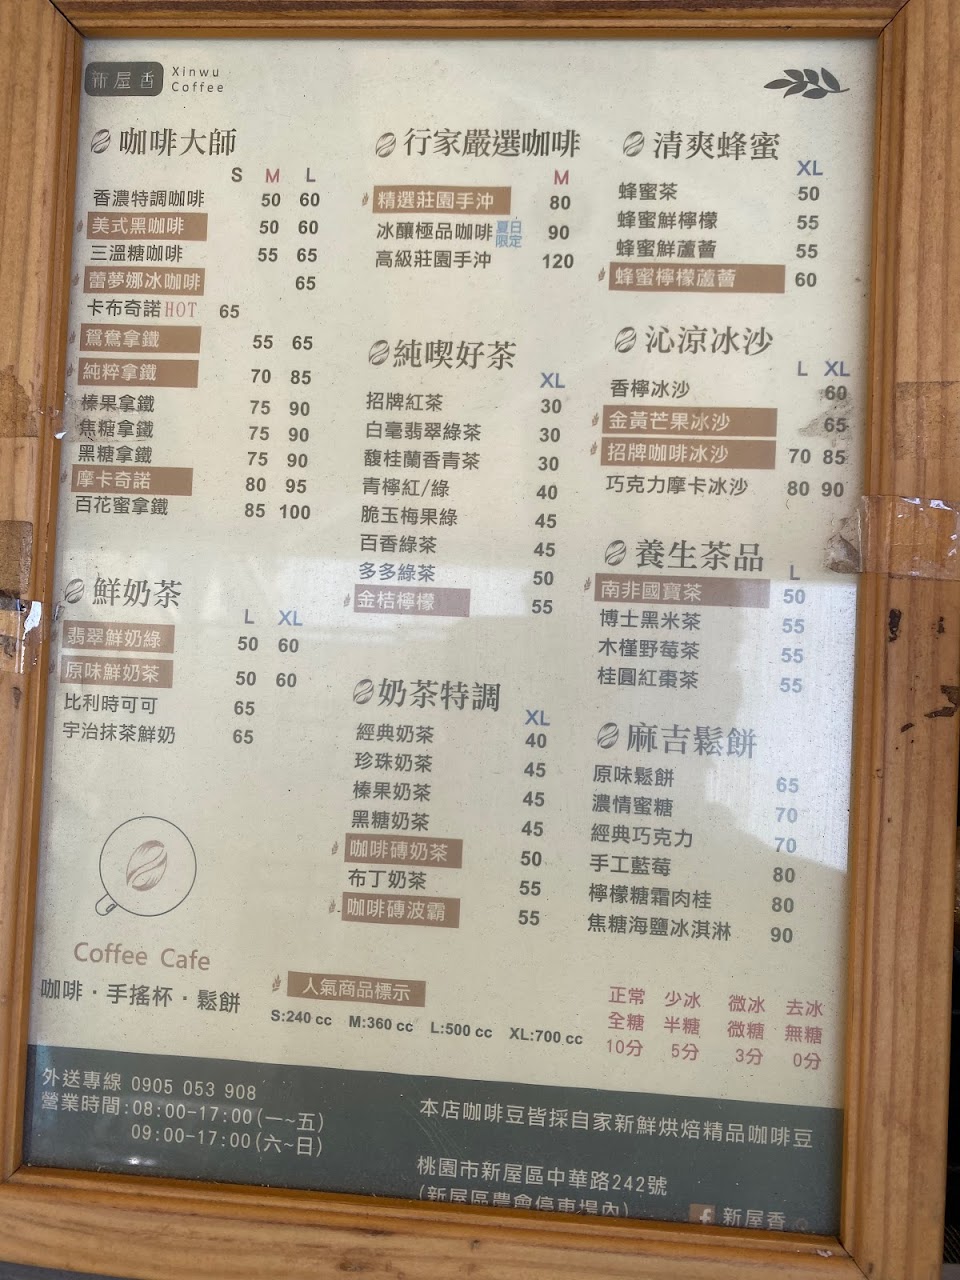 新屋香 Xinwu Coffee
咖啡大師
S M L
香濃特調咖啡 50 60
美式黑咖啡 50 60
三溫糖咖啡 55 65
蕾夢娜冰咖啡 65
卡布奇諾HOT 65
鴛鴦拿鐵 55 65
純粹拿鐵 70 85
榛果拿鐵 75 90
焦糖拿鐵 75 90
黑糖拿鐵 75 90
摩卡奇諾 80 95
百花蜜拿鐵 85 100
鮮奶茶
L XL
翡翠鮮奶綠 50 60
原味鮮奶茶 50 60
比利時可可 65
宇治抹茶鮮奶 65
Coffee Cafe
咖啡·手搖杯·鬆餅
行家嚴選咖啡
M
精選莊園手沖 80
冰釀極品咖啡 夏日限定 90
高級莊園手沖 120
純喫好茶
XL
招牌紅茶 30
白毫翡翠綠茶 30
馥桂蘭香青茶 30
青檸紅/綠 40
脆玉梅果綠 45
百香綠茶 45
多多綠茶 50
金桔檸檬 55
奶茶特調
XL
經典奶茶 40
珍珠奶茶 45
榛果奶茶 45
黑糖奶茶 45
咖啡磚奶茶 50
布丁奶茶 55
咖啡磚波霸 55
清爽蜂蜜
XL
蜂蜜茶 50
蜂蜜鮮檸檬 55
蜂蜜鮮蘆薈 55
蜂蜜檸檬蘆薈 60
沁涼冰沙
L XL
香檸冰沙 60
金黃芒果冰沙 65
招牌咖啡冰沙 70 85
巧克力摩卡冰沙 80 90
養生茶品
L
南非國寶茶 50
博士黑米茶 55
木槿野莓茶 55
桂圓紅棗茶 55
麻吉鬆餅
原味鬆餅 65
濃情蜜糖 70
經典巧克力 70
手工藍莓 80
檸檬糖霜肉桂 80
焦糖海鹽冰淇淋 90
人氣商品標示
S:240 cc M:360 cc L:500 cc XL:700 cc
正常 少冰 微冰 去冰
全糖 半糖 微糖 無糖
10分 5分 3分 0分
外送專線 0905 053 908
營業時間:08:00-17:00(一~五)
09:00-17:00(六~日)
本店咖啡豆皆採自家新鮮烘焙精品咖啡豆
桃園市新屋區中華路242號
(新屋區農會停車場內)
f 新屋香